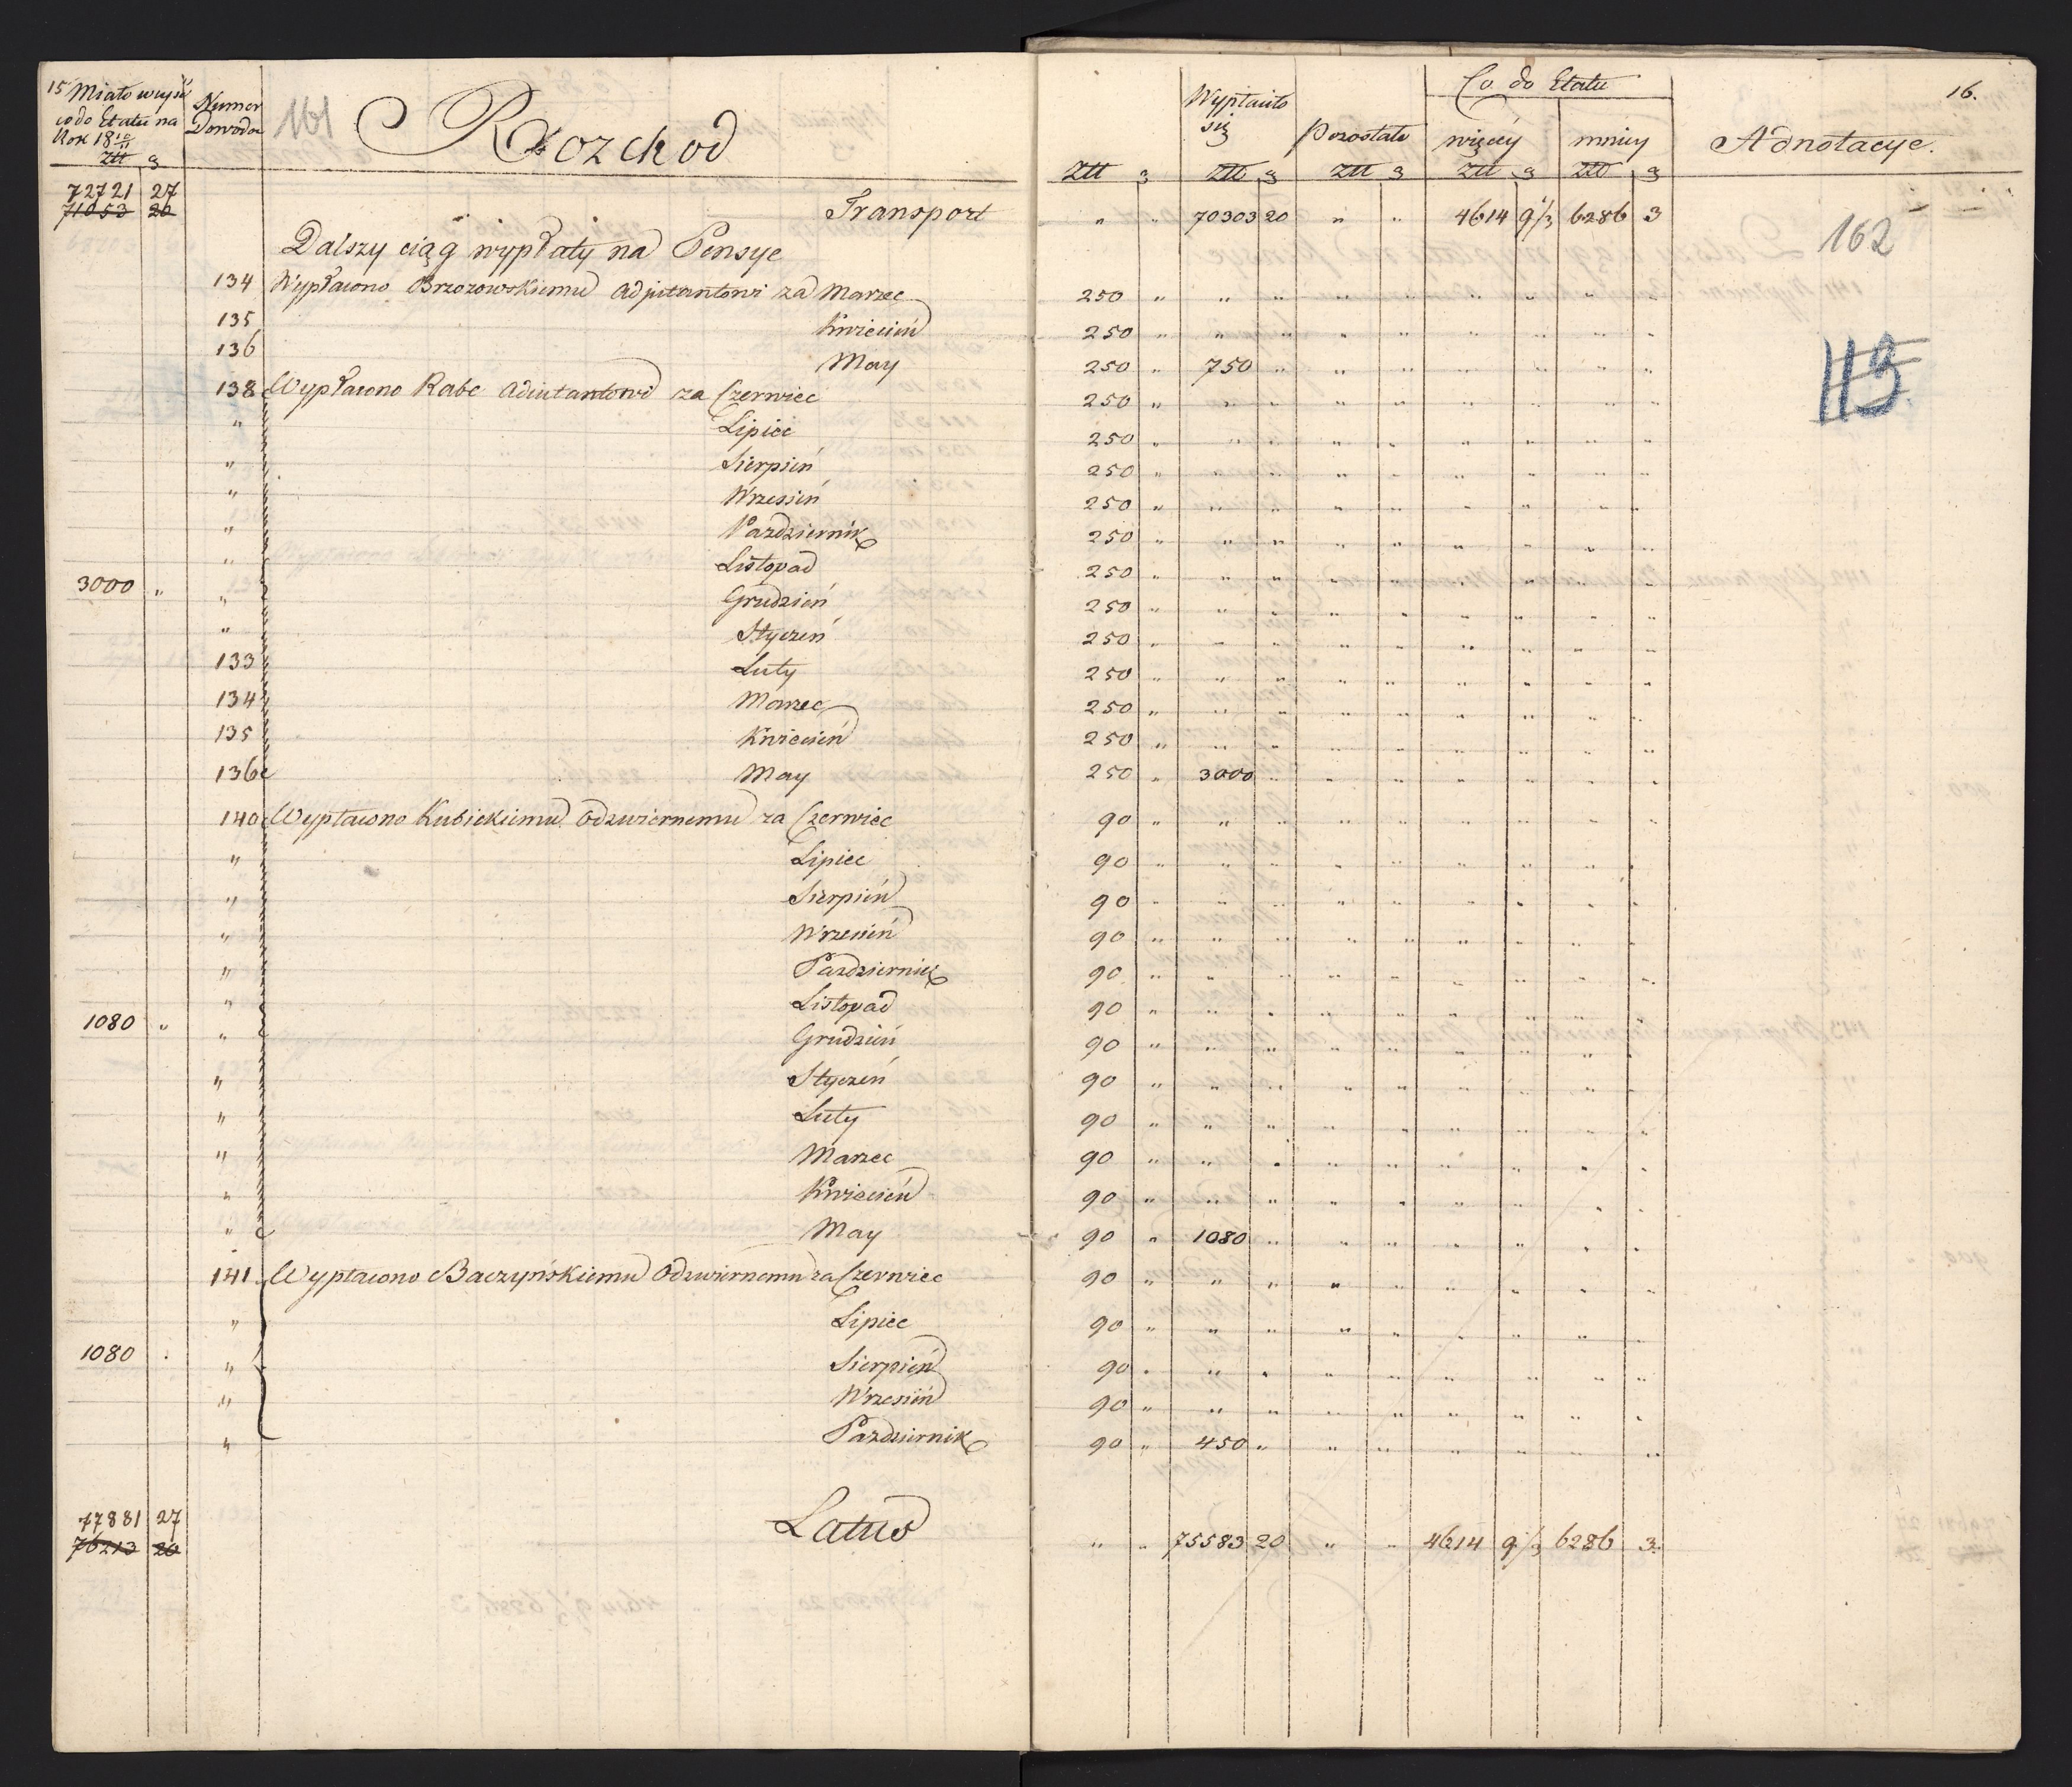 15 Miało wyjść
co do Etatu na
Rok 18 10/11
Ztt g
Numer
Dowodu
161
Rozchod
Wypłaciło
się
Pozostale
Co do Etatu
więcey
mniey
Adnotacye.
16.
Ztt g Ztt g Ztt g Ztt g Ztt g
72721 27
71053 20
Transport " " 70303 20 " " 4614 9 1/3 6286 3
162
Dalszy ciąg wypłaty na Pensye
134 Wypłacono Brzozowskiemu Adjutantowi za Marzec 250 "
135 Kwiecień 250 "
136 May 250 " 750 "
113
138 Wypłacono Rabe Adiutantowi za Czerwiec 250 "
" Lipiec 250 "
" Sierpień 250 "
" Wrzesień 250 "
" Pazdziernik 250 "
" Listopad 250 "
3000 " " Grudzień 250 "
" Styczeń 250 "
133 Luty 250 "
134 Marzec 250 "
135 Kwiecień 250 "
136 May 250 " 3000 "
140 Wypłacono Kubickiemu Odzwiernemu za Czerwiec 90 "
" Lipiec 90 "
" Sierpień 90 "
" Wrzesień 90 "
" Pazdziernik 90 "
" Listopad 90 "
1080 " " Grudzień 90 "
" Styczeń 90 "
" Luty 90 "
" Marzec 90 "
" Kwiecień 90 "
" May 90 " 1080 "
141 Wypłacono Baczyńskiemu Odzwiernemu za Czerwiec 90 "
" Lipiec 90 "
1080 " " Sierpień 90 "
" Wrzesień 90 "
" Pazdziernik 90 " 450 "
77881 27
76213 20
Latus " " 75583 20 " " 4614 9 1/3 6286 3